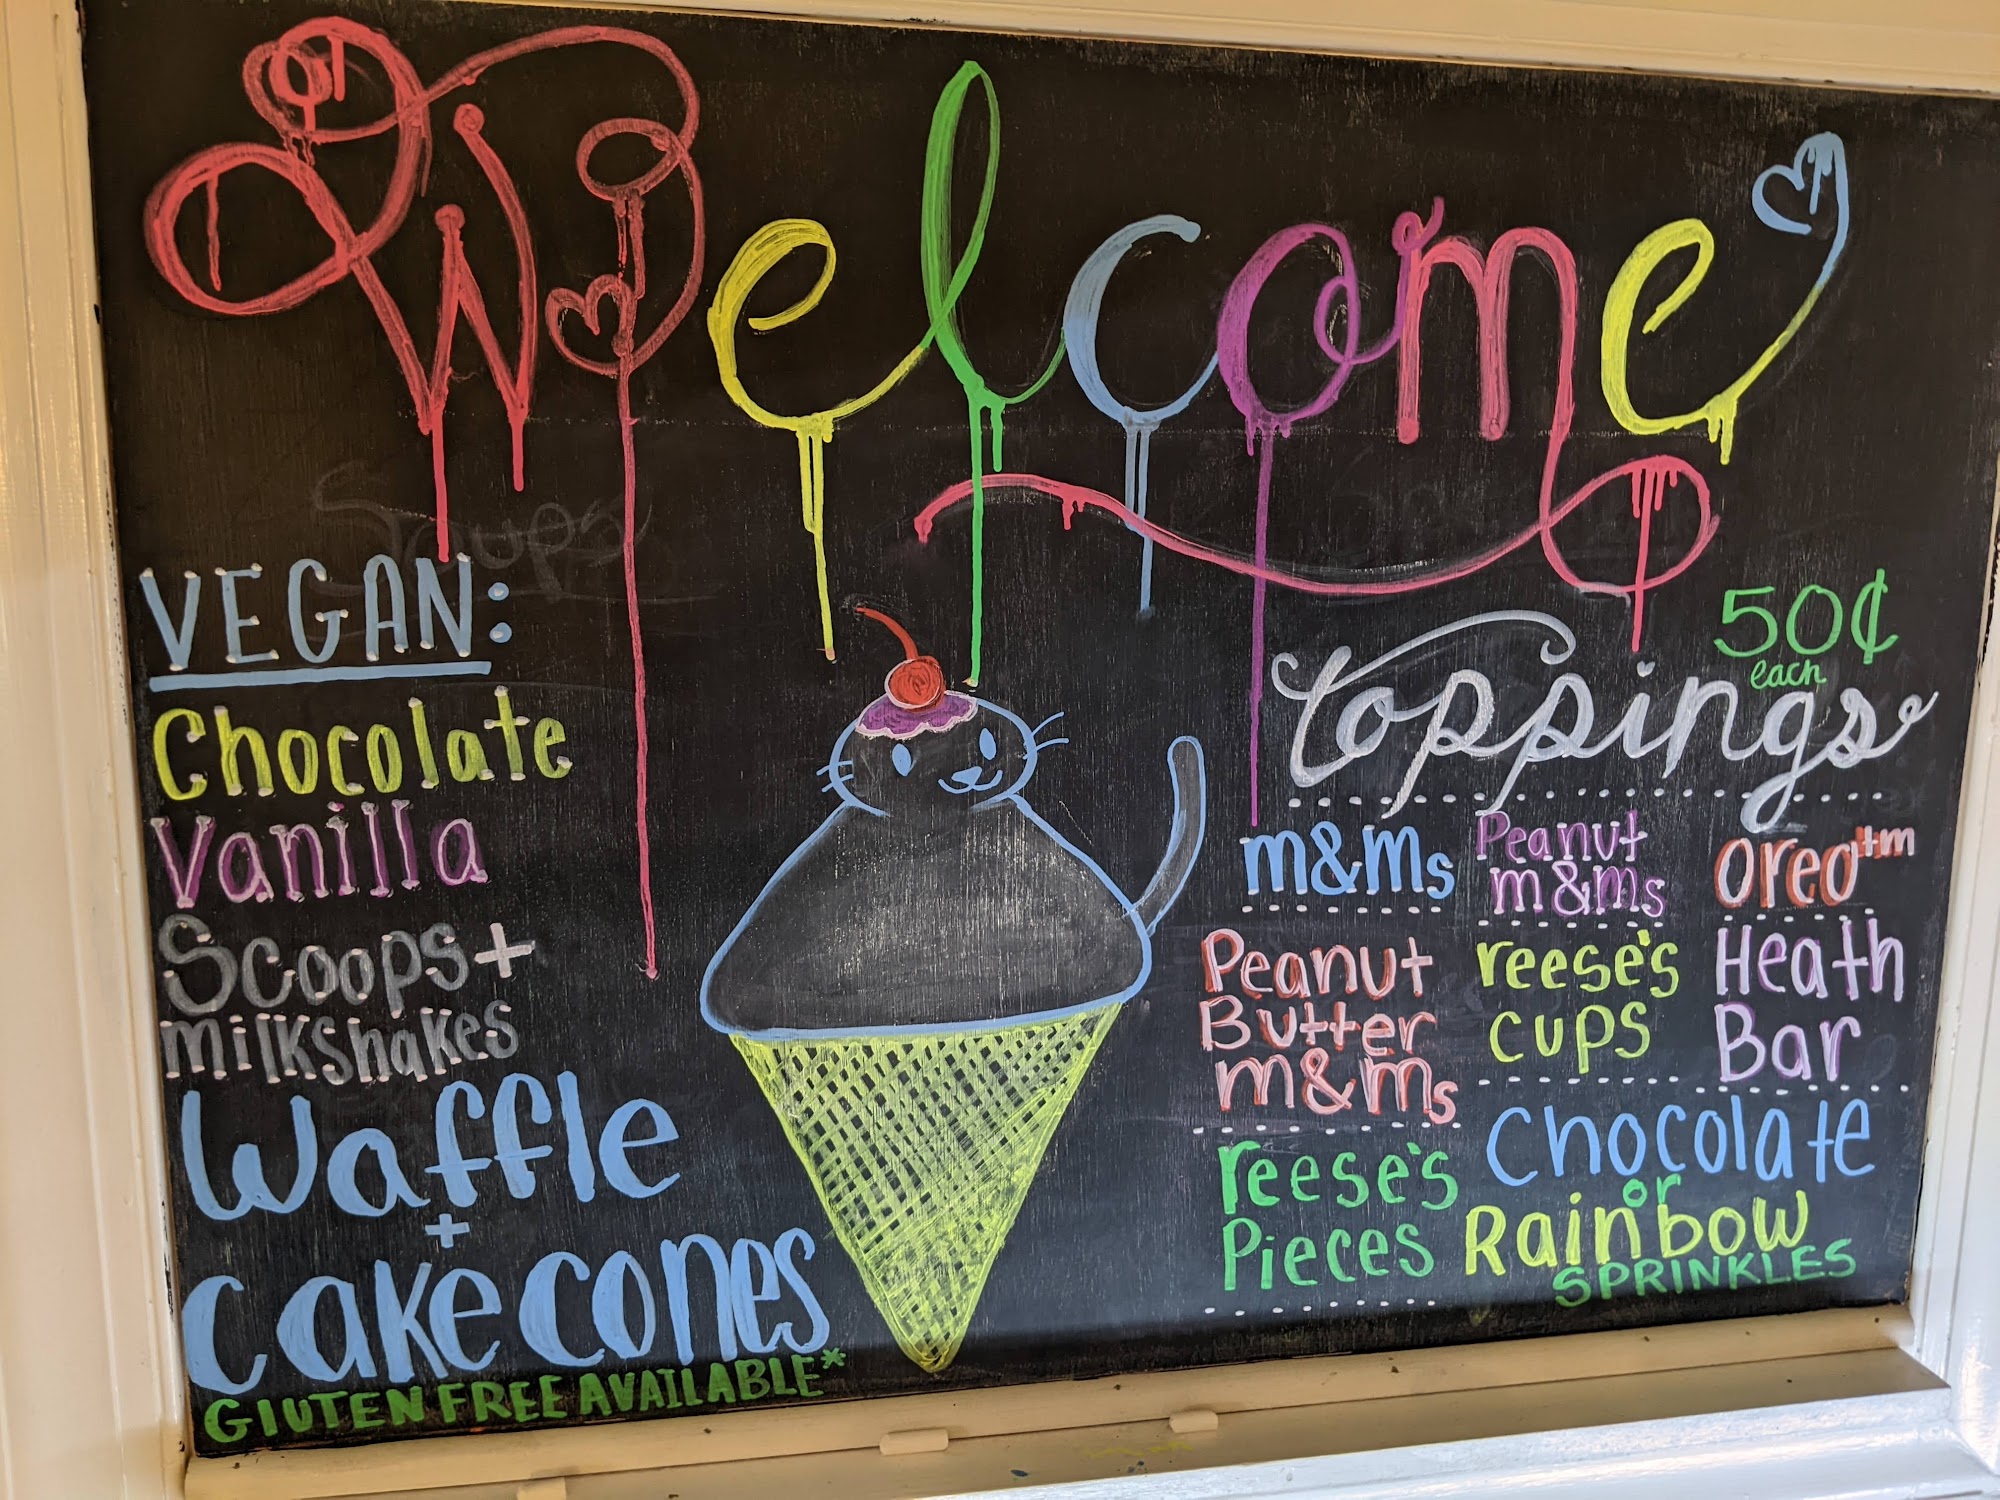 Welcome
Soups
VEGAN:
Chocolate
Vanilla
Scoops +
milkshakes
Waffle
+
Cake cones
GlUTEN FREE AVAILABLE*
50¢
each
toppings
m&ms
Peanut
m&ms
Oreo tm
Peanut
Butter
m&ms
reese's
cups
Heath
Bar
reese's
Pieces
Chocolate
or
Rainbow
SPRINKLES